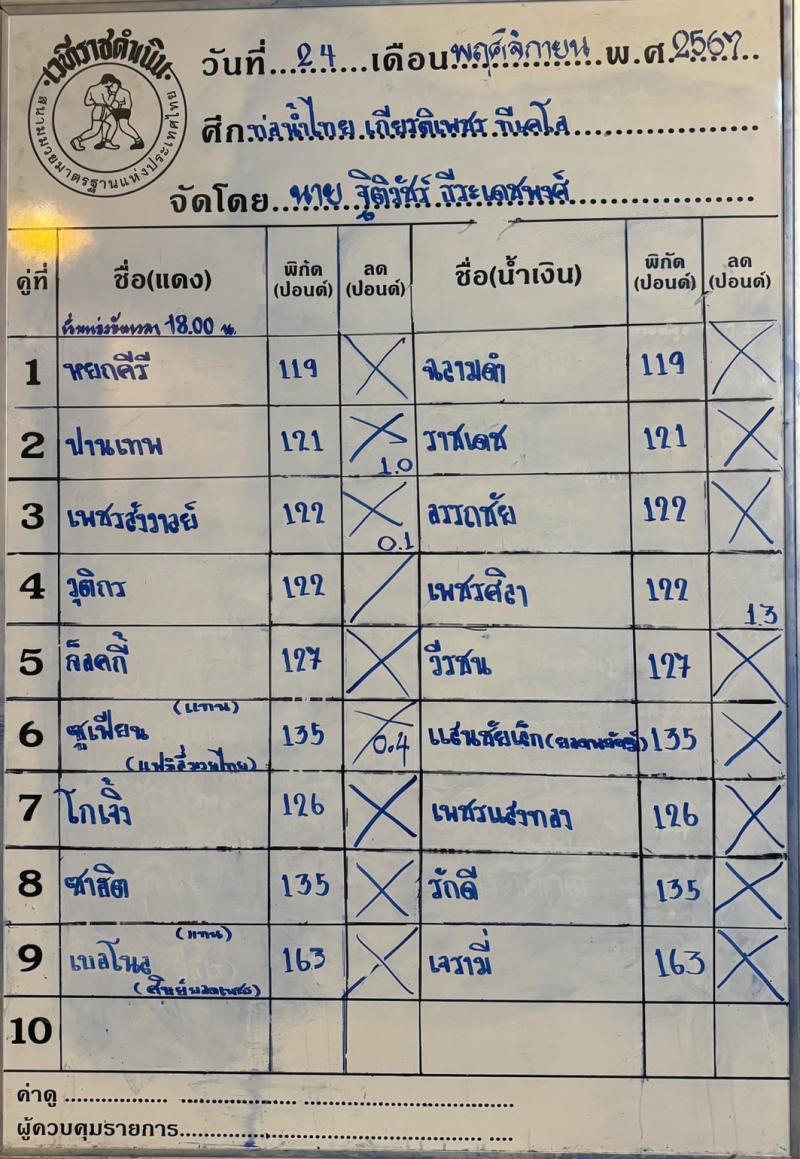 เวทีราชดำเนิน
สนามมวยมาตรฐานแห่งประเทศไทย
วันที่...24...เดือน พฤศจิกายน พ.ศ. 2567
ศึก ท่อน้ำไทย เกียรติเพชร ทีเคโอ
จัดโดย นาย ฐิติวัชร์ ธีระเดชพงศ์
คู่ที่ ชื่อ(แดง) พิกัด (ปอนด์) ลด (ปอนด์) ชื่อ(น้ำเงิน) พิกัด (ปอนด์) ลด (ปอนด์)
18.00 น.
1 หยกคีรี 119 ฉลามดำ 119
2 ปานเทพ 121 1.0 ราชเดช 121
3 เพชรสังวาลย์ 122 0.1 อรรถชัย 122
4 วุติกร 122 เพชรศิลา 122 1.3
5 ล็อคกี้ 127 วีรชน 127
(แทน)
6 ซูเฟียน 135 0.4 แสนชัยเล็ก 135
(แฟรี่มวยไทย)
7 โกเจิ้ง 126 เพชรแสงทอง 126
8 ซาสิต 135 รักดี 135
(แทน)
9 เบลโนล 163 เจรามี่ 163
10
ค่าดู
ผู้ควบคุมรายการ